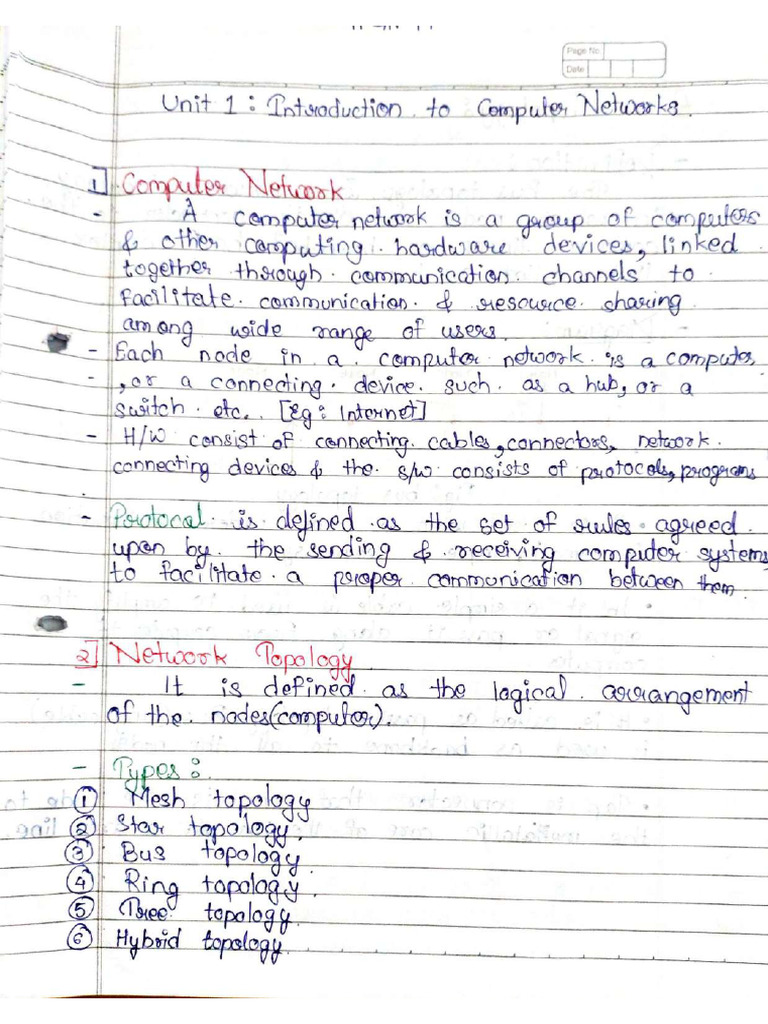 Page No
Date
Unit 1 : Introduction to Computer Networks.
1] Computer Network
- A computer network is a group of computers
& other computing hardware devices, linked
together through communication channels to
facilitate communication & resource sharing
among wide range of users.
- Each node in a computer network is a computer
- , or a connecting device such as a hub, or a
switch etc. [Eg: Internet]
- H/W consist of connecting cables, connectors, network
connecting devices & the s/w consists of protocols, programs
- Protocal is defined as the set of rules agreed
upon by the sending & receiving computer systems
to facilitate a proper communication between them.
2] Network Topology
- It is defined as the logical arrangement
of the nodes(computer).
- Types :
① Mesh topology
② Star topology.
③ Bus topology.
④ Ring topology.
⑤ Tree topology.
⑥ Hybrid topology.